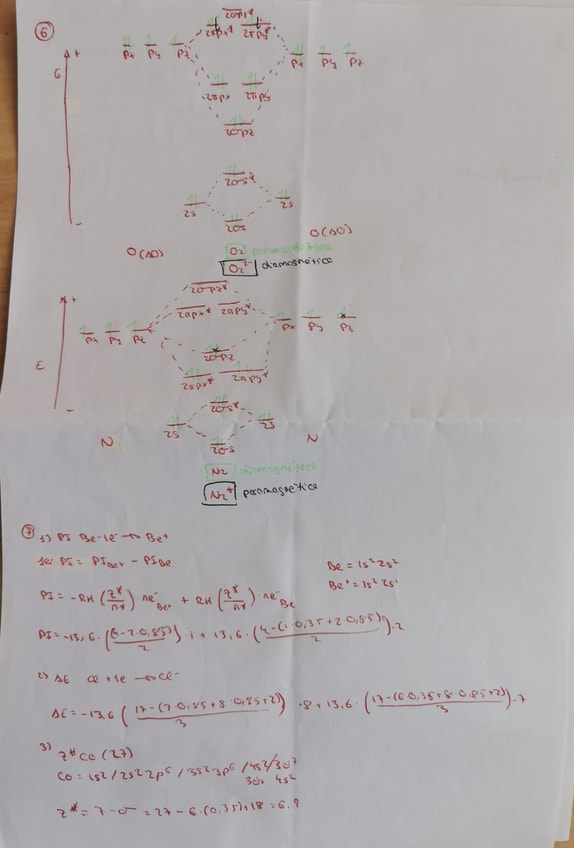 6
2σpz*
2πpx* 2πpy*
px py pz
px py pz
E
+
2πpx 2πpy
2σpz
2σs*
2s
2s
2σs
-
O(AO)
O(AO)
O2 paramagnética
O2²⁻ diamagnética
+
2σpz*
2πpx* 2πpy*
px py pz
px py pz
2σpz
E
2πpx* 2πpy*
2σs*
2s
2s
-
2σs
N
N
N2 diamagnética
N2+ paramagnética
7
1) PI Be-1e⁻ → Be+
1er PI = PI Be+ - PI Be
Be = 1s² 2s²
Be+ = 1s² 2s¹
PI = -RH (Z*/n*) ne⁻ Be+ + RH (Z*/n*) ne⁻ Be
PI = -13,6 · (4-2·0,85)/2) · 1 + 13,6 · (4-(1·0,35+2·0,85)/2) · 2
2) ΔE Cl + 1e → Cl⁻
ΔE = -13,6 (17-(7·0,35+8·0,85+2)/3) · 8 + 13,6 · (17-(6·0,35+8·0,85+2)/3) · 7
3) Z* Co (27)
Co = 1s² / 2s² 2p⁶ / 3s² 3p⁶ / 4s² / 3d⁷
3d⁷ 4s²
Z* = Z - σ = 27 - 6·(0,35)+18 = 6,9